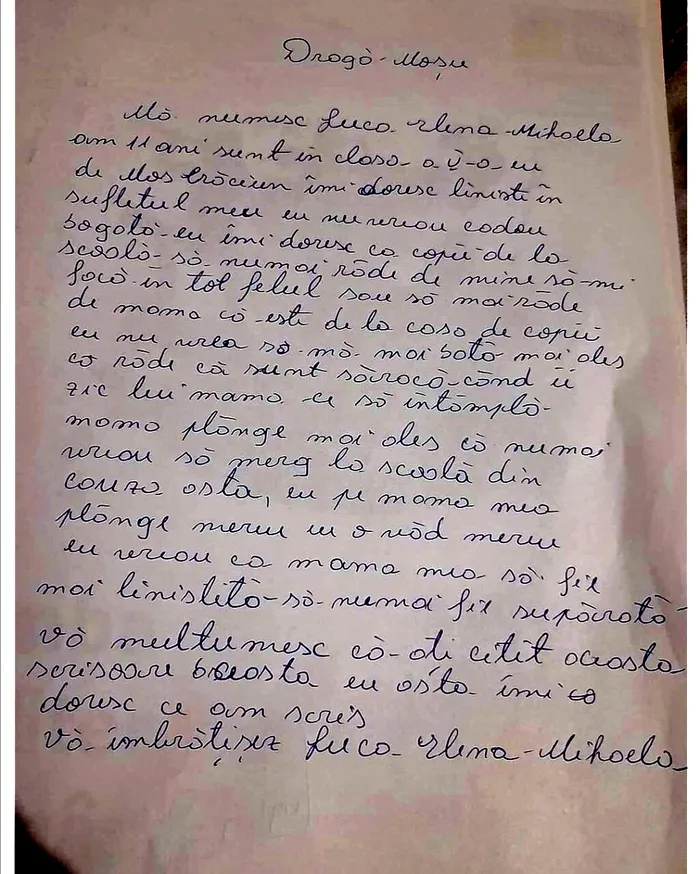 Dragă Moșu
Mă numesc Luca Elena-Mihaela
am 11 ani sunt in clasa a V-a eu
de Mos Crăciun îmi doresc liniste în
sufletul meu eu nu vreau cadou
bogată eu îmi doresc ca copii de la
scoală să numai râde de mine să-mi
facă în tot felul sau să mai râde
de mama că este de la casa de copii
eu nu vrea să mă mai bată mai ales
ca râde că sunt săracă când ii
zic lui mama ce să întâmplă
mama plânge mai ales că numai
vreau să merg la scoală din
cauza asta, eu pe mama mea
plânge mereu eu o văd mereu
eu vreau ca mama mea să fie
mai linistită să numai fie supărată
vă multumesc că ați citit aceasta
scrisoare aceasta eu asta îmi
doresc ce am scris
vă îmbrățișez Luca Elena-Mihaela